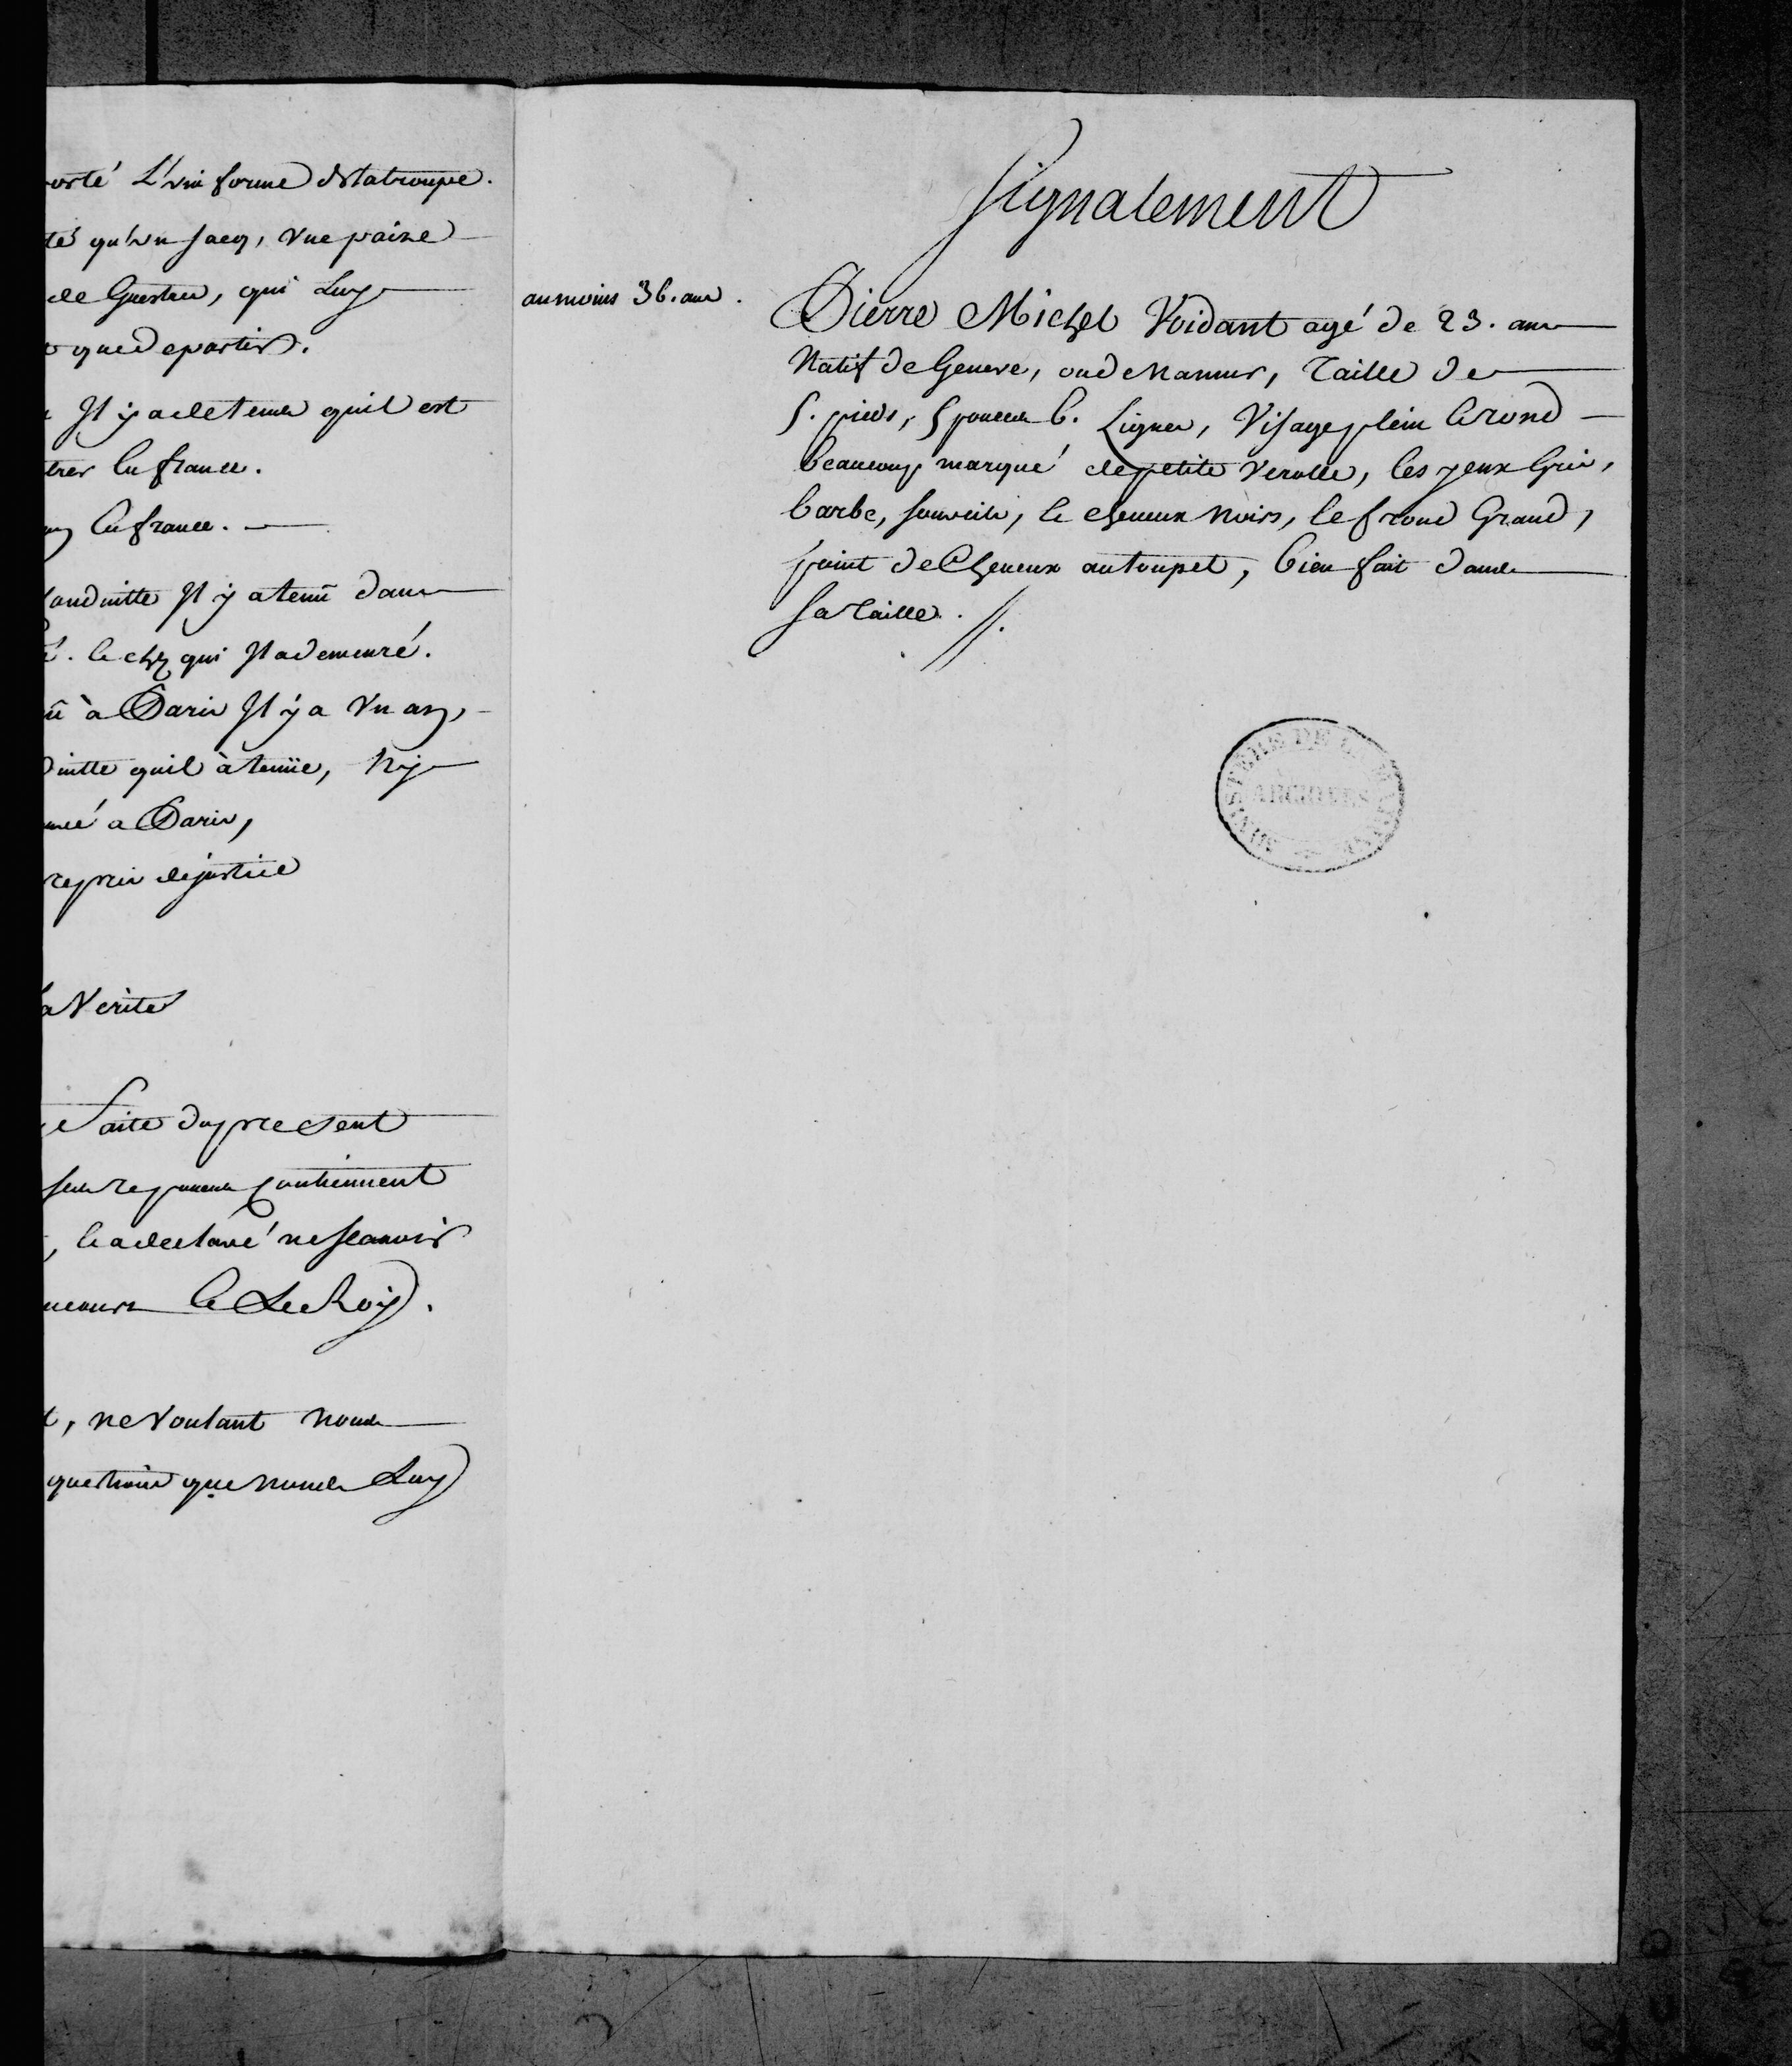 orté L'uniforme dela troupe.
té qu'un sacq, une paire
de Guestres, qui Luy
que departir.
Il y a dctems quil est
trer En france.
En france.
Conduitte Il y a tenü dans
é. Et chez qui Il a demeuré.
ü à Paris Il y a Un an,
duitte quil à tenüe, Ny
mé a Paris,
repris de justice
a Verité
e faite du present
ses reponses Contiennent
, Et a declaré ne scavoir
ncourt Et Le Roy.
t, ne Voulant nous
questions que nous Luy
Signalement
au moins 36. ans.
Pierre Michel Voidant agé de 23. ans
Natif de Geneve, ou de Namur, Taille de
5. pieds, 5 pouces 6. Lignes, Visage plein Et rond
beaucoup marqué de petite Verolle, les yeux Gris,
barbe, sourcils, Et cheveux noirs, le frond Grand,
point de Cheveux au toupet, bien fait dans
sa Taille. //.
MINISTERE DE LA MARINE
ARCHIVES